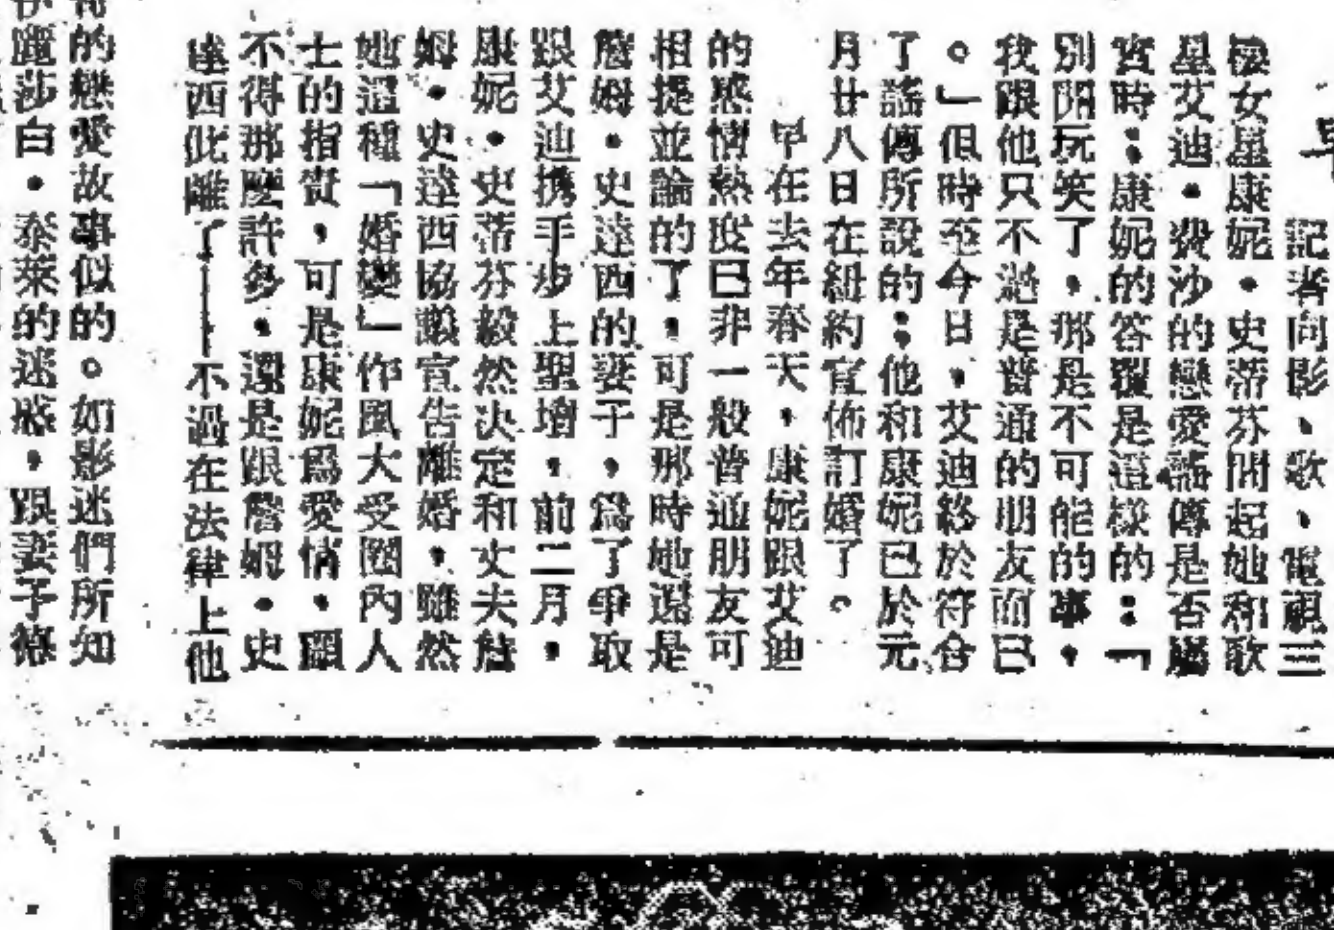 早
記者向影、歌、電視三
棲女星康妮・史蒂芬問起她和歌
星艾迪・費沙的戀愛謠傳是否屬
實時：康妮的答覆是這樣的：「
別開玩笑了，那是不可能的事，
我跟他只不過是普通的朋友而已
。」但時至今日，艾迪終於符合
了謠傳所說的：他和康妮已於元
月廿八日在紐約宣佈訂婚了。
早在去年春天，康妮跟艾迪
的感情熱度已非一般普通朋友可
相提並論的了，可是那時她還是
詹姆・史達西的妻子，爲了爭取
跟艾迪携手步上聖壇，前二月，
康妮・史蒂芬毅然決定和丈夫詹
姆・史達西協議宣告離婚，雖然
她這種「婚變」作風大受圈內人
士的指責，可是康妮爲愛情，顧
不得那麼許多，還是跟詹姆・史
達西仳離了——不過在法律上他
的戀愛故事似的。如影迷們所知
麗莎白・泰萊的迷惑，跟妻子德